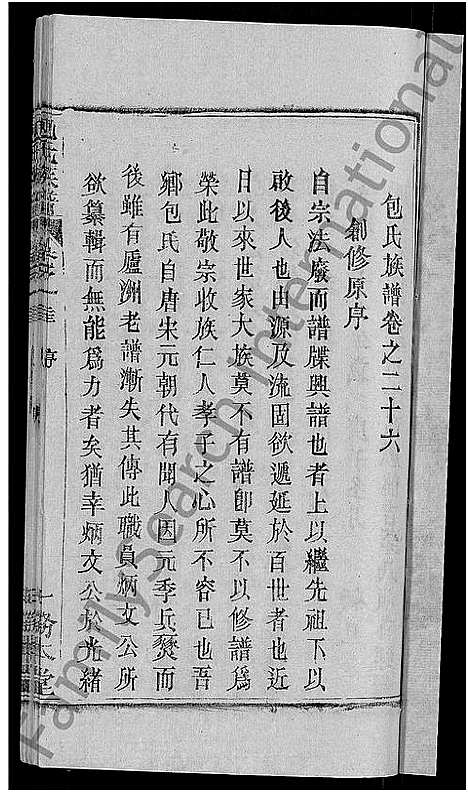 包氏族譜卷之二十六
創修原序
自宗法廢而譜牒興譜也者上以繼先祖下以
啟後人也由源及流固欲遞延於百世者也近
日以來世家大族莫不有譜卽莫不以修譜爲
榮此敬宗收族仁人孝子之心所不容已也吾
鄉包氏自唐宋元朝代有聞人因元季兵燹而
後雖有廬洲老譜漸失其傳此職員炳文公所
欲纂輯而無能爲力者矣猶幸炳文公於光緒
包氏族譜
序
FamilySearch International